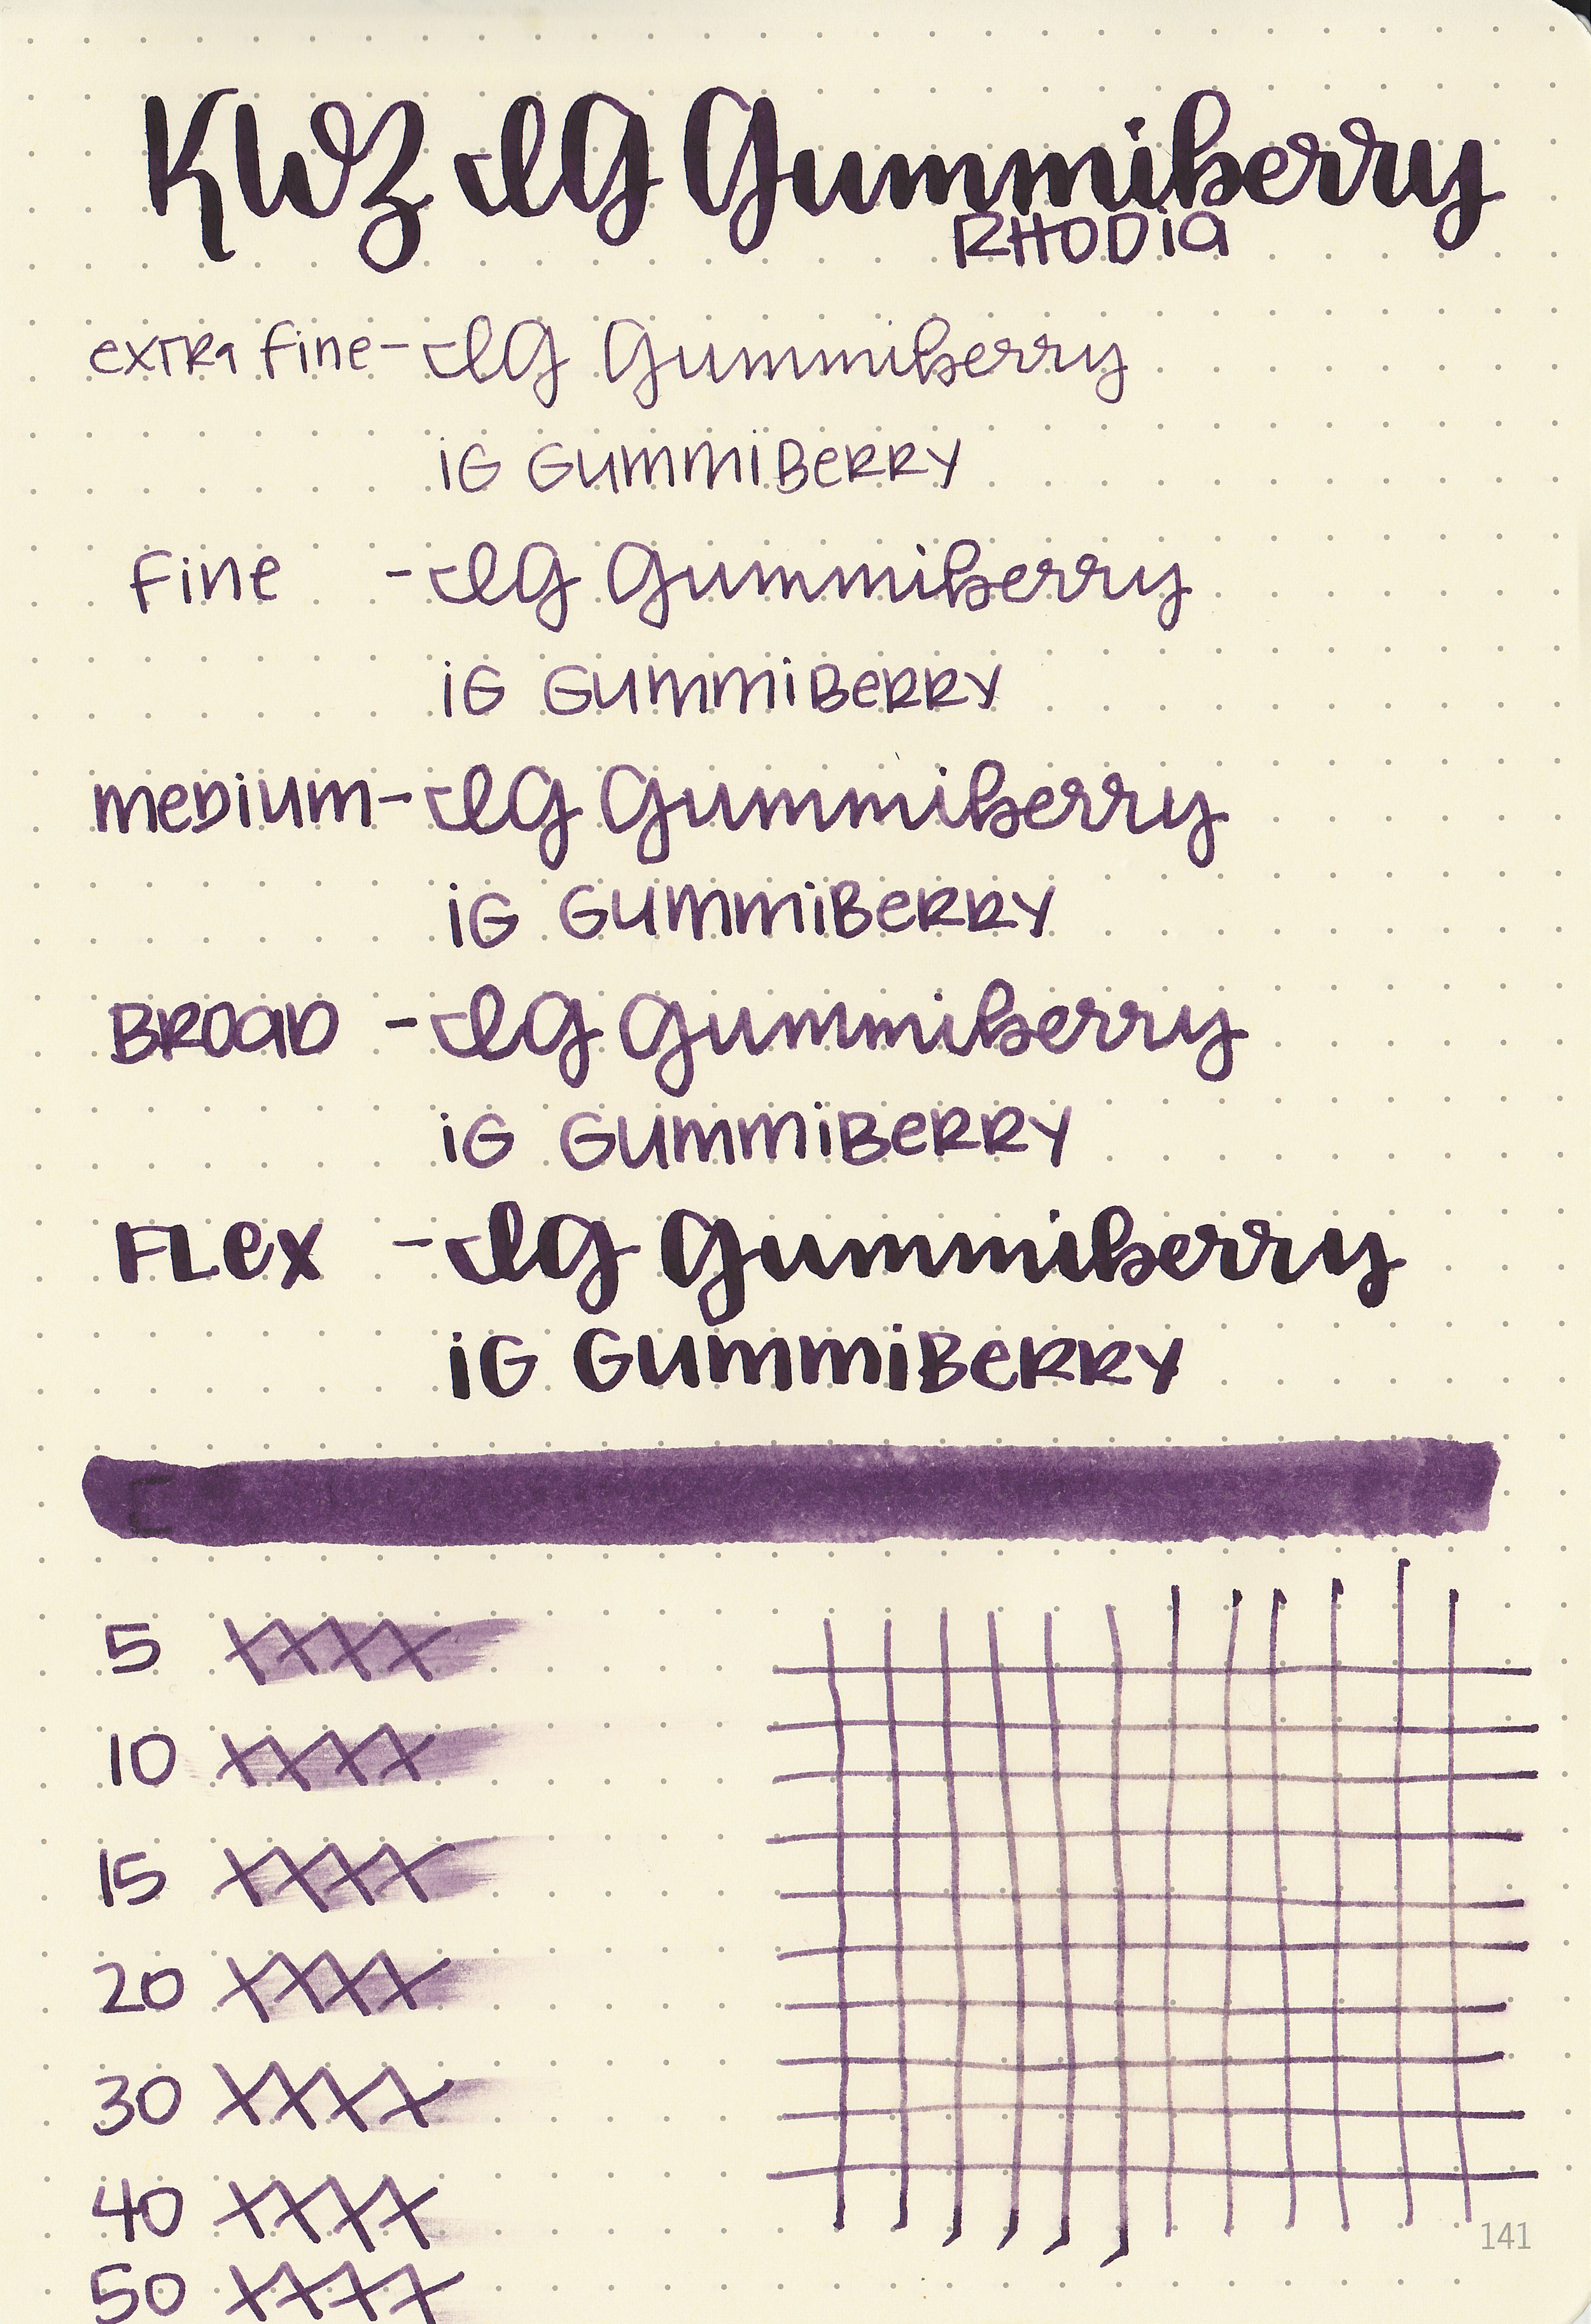 KWZ IG Gummiberry
RHODiA
extra fine - IG Gummiberry
iG GummiBeRRY
fine - IG Gummiberry
iG GummiBeRRY
meDium - IG Gummiberry
iG GummiBeRRY
BROAD - IG Gummiberry
iG GummiBeRRY
FLex - IG Gummiberry
iG GummiBeRRY
5 XXXX
10 XXXX
15 XXXX
20 XXXX
30 XXXX
40 XXXX
50 XXXX
141